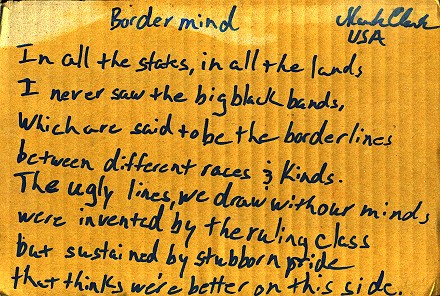 Border mind
Mark Clark
USA
In all the states, in all the lands
I never saw the big black bands,
Which are said to be the borderlines
between different races & Kinds.
The ugly lines, we draw with our minds
were invented by the ruling class
but sustained by stubborn pride
that thinks we're better on this side.